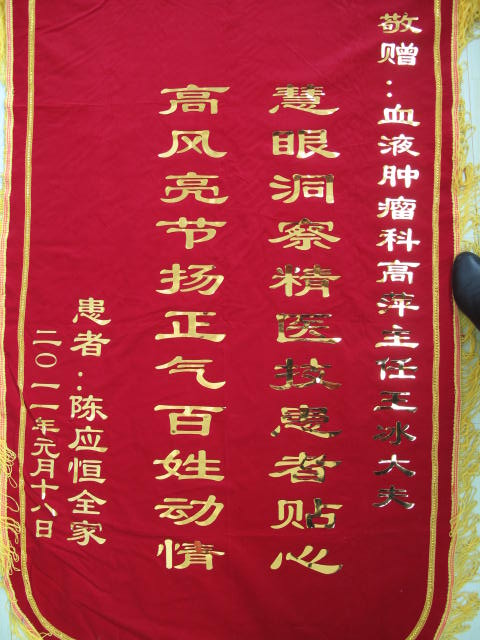 敬赠：血液肿瘤科高萍主任王冰大夫
慧眼洞察精医技患者贴心
高风亮节扬正气百姓动情
患者：陈应恒全家
二〇一一年元月十八日